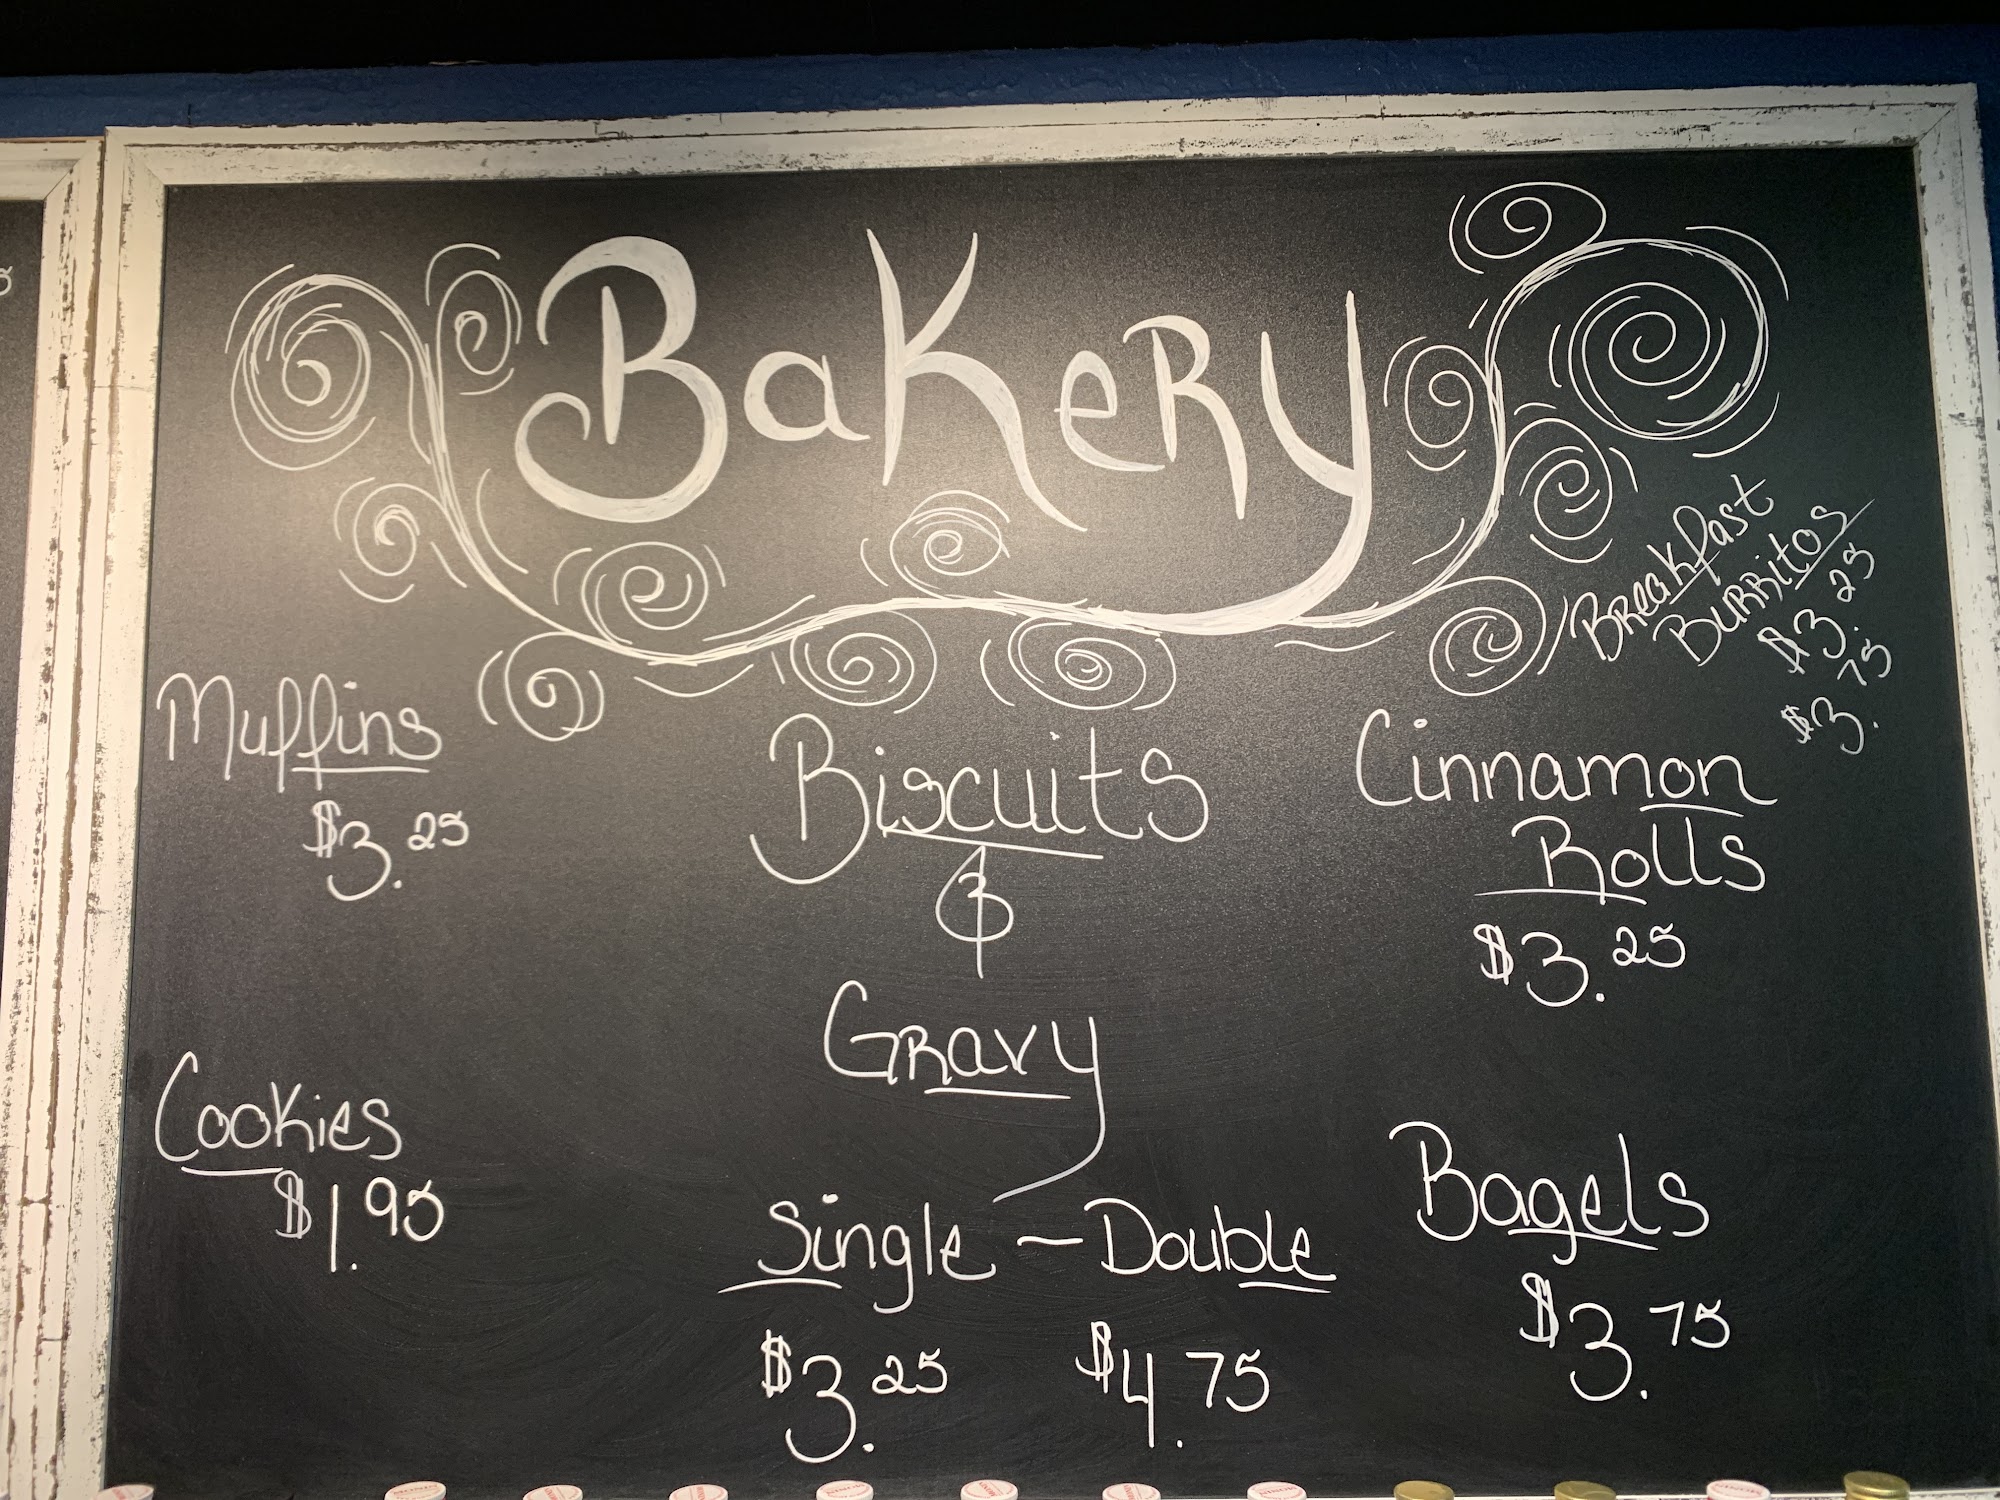 Bakery
Breakfast
Burritos
$3.25
$3.75
Muffins
$3.25
Biscuits
&
Gravy
Single - Double
$3.25 $4.75
Cinnamon
Rolls
$3.25
Cookies
$1.95
Bagels
$3.75